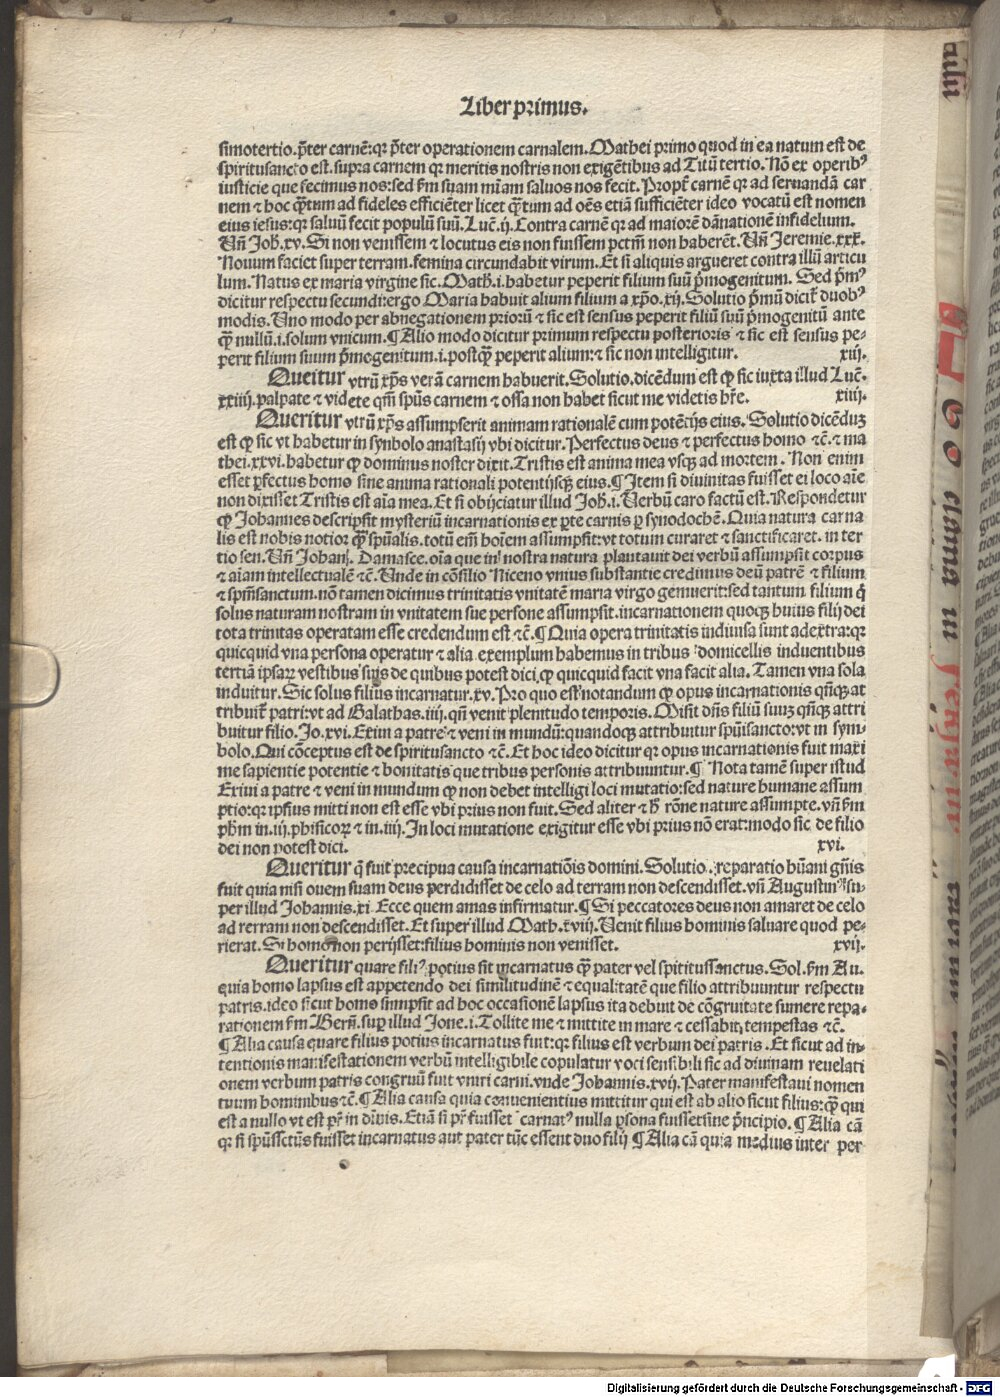 Liber primus.
simotertio. p̄ter carnē: qꝛ p̄ter operationem carnalem. Mathei primo quod in ea natum est de
spiritusancto est. supra carnem qꝛ meritis nostris non exigētibus ad Titū tertio. Nō ex operibꝰ
iusticie que fecimus nos: sed ẜm suam mīam saluos nos fecit. Propt̄ carnē qꝛ ad seruandā car
nem ⁊ hoc qͣtum ad fideles efficiēter licet qͣtum ad oēs etiā sufficiēter ideo vocatū est nomen
eius iesus: qꝛ saluū fecit populū suū. Luc̄. ij. Contra carnē qꝛ ad maiorē dānationē infidelium.
Vn̄ Joh̄. xv. Si non venissem ⁊ locutus eis non fuissem pctm̄ non haberēt. Vn̄ Jeremie. xxx.
Nouum faciet super terram. femina circundabit virum. Et si aliquis argueret contra illū articu
lum. Natus ex maria virgine sic. Math̄. i. habetur peperit filium suū p̄mogenitum. Sed p̄mꝰ
dicitur respectu secundi: ergo Maria habuit alium filium a xp̄o. xij. Solutio p̄mū dicit̄ duobꝰ
modis. Uno modo per abnegationem priorū ⁊ sic est sensus peperit filiū suū p̄mogenitū ante
qͣꝫ nullū. i. solum vnicum. ¶ Alio modo dicitur primum respectu posterioris ⁊ sic est sensus pe-
perit filium suum p̄mogenitum. i. postqͣꝫ peperit alium: ⁊ sic non intelligitur. xiij.
Queitur vtrū xp̄s verā carnem habuerit. Solutio. dicēdum est ꝙ sic iuxta illud Luc̄.
xxiiij. palpate ⁊ videte qm̄ spūs carnem ⁊ ossa non habet sicut me videtis hr̄e. xiiij.
Queritur vtrū xp̄s assumpserit animam rationalē cum potētijs eius. Solutio dicēduꝫ
est ꝙ sic vt habetur in symbolo anastasij vbi dicitur. Perfectus deus ⁊ perfectus homo ⁊c̄. ⁊ ma
thei. xxvi. habetur ꝙ dominus noster dixit. Tristis est anima mea vsqꝫ ad mortem. Non enim
esset ꝑfectus homo sine anima rationali potentijsqꝫ eius. ¶ Item si diuinitas fuisset ei loco aīe
non dixisset Tristis est aīa mea. Et si obijciatur illud Joh̄. i. Verbū caro factū est. Respondetur
ꝙ Johannes descripsit mysteriū incarnationis ex ꝑte carnis ꝑ synodochē. Quia natura carna
lis est nobis notior qͣꝫ spūalis. totū em̄ hoīem assumpsit: vt totum curaret ⁊ sanctificaret. in ter
tio sen. Vn̄ Johan̄. Damasce. oīa que in nostra natura plantauit dei verbū assumpsit corpus
⁊ aīam intellectualē ⁊c̄. Unde in cōsilio Niceno vnius substantie credimus deū patrē ⁊ filium
⁊ spm̄sanctum. nō tamen dicimus trinitatis vnitatē maria virgo genuerit: sed tantum filium q̄
solus naturam nostram in vnitatem sue persone assumpsit. incarnationem quoqꝫ huius filij dei
tota trinitas operatam esse credendum est. ⁊c̄. ¶ Quia opera trinitatis indiuisa sunt ad extra: qꝛ
quicquid vna persona operatur ⁊ alia. exemplum habemus in tribus domicellis induentibus
tertiā ipsaꝝ vestibus suis de quibus potest dici. ꝙ quicquid facit vna facit alia. Tamen vna sola
induitur. Sic solus filius incarnatur. xv. Pro quo est notandum ꝙ opus incarnationis qn̄qꝫ at
tribuit̄ patri: vt ad Galathas. iiij. qn̄ venit plenitudo temporis. Misit dn̄s filiū suuꝫ qn̄qꝫ attri
buitur filio. Jo. xvi. Exiui a patre ⁊ veni in mundū: quandoqꝫ attribuitur spūisancto: vt in sym-
bolo. Qui cōceptus est de spiritusancto ⁊c̄. Et hoc ideo dicitur qꝛ opus incarnationis fuit maxi
me sapientie potentie ⁊ bonitatis que tribus personis attribuuntur. ¶ Nota tamē super istud
Exiui a patre ⁊ veni in mundum ꝙ non debet intelligi loci mutatio: sed nature humane assum
ptio: qꝛ ipsius mitti non est esse vbi prius non fuit. Sed aliter ⁊ h̄ rōne nature assumpte. vn̄ ẜm
ph̄m in. iij. phisicoꝝ ⁊ in. iiij. In loci mutatione exigitur esse vbi prius nō erat: modo sic de filio
dei non potest dici. xvi.
Queritur q̄ fuit precipua causa incarnatiōis domini. Solutio. reparatio hūani gn̄is
fuit quia nisi ouem suam deus perdidisset de celo ad terram non descendisset. vn̄ Augustinꝰ su-
per illud Johannis. xi. Ecce quem amas infirmatur. ¶ Si peccatores deus non amaret de celo
ad rerram non descendisset. Et super illud Math. xviij. Uenit filius hominis saluare quod pe-
rierat. Si homo non perijsset: filius hominis non venisset. xvij.
Queritur quare filiꝰ potius sit incarnatus qͣꝫ pater vel spititussanctus. Sol. ẜm Au.
quia homo lapsus est appetendo dei similitudinē ⁊ equalitatē que filio attribuuntur respectu
patris. ideo sicut homo sumpsit ad hoc occasionē lapsus ita debuit de cōgruitate sumere repa-
rationem ẜm Bern̄. suꝑ illud Jone. i. Tollite me ⁊ mittite in mare ⁊ cessabit tempestas ⁊c̄.
¶ Alia causa quare filius potius incarnatus fuit: qꝛ filius est verbum dei patris. Et sicut ad in-
tentionis manifestationem verbū intelligibile copulatur voci sensibili sic ad diuinam reuelati
onem verbum patris congruū fuit vniri carni. vnde Johannis. xvij. Pater manifestaui nomen
tuum hominibus ⁊c̄. ¶ Alia causa quia conuenientius mittitur qui est ab alio sicut filius: qͣꝫ qui
est a nullo vt est pr̄ in diuīs. Etiā si pr̄ fuisset carnatꝰ nulla ꝑsona fuisset sine p̄ncipio. ¶ Alia cā
qꝛ si spūssctūs fuisset incarnatus aut pater tūc essent duo filij ¶ Alia cā quia medius inter per
Digitalisierung gefördert durch die Deutsche Forschungsgemeinschaft - DFG